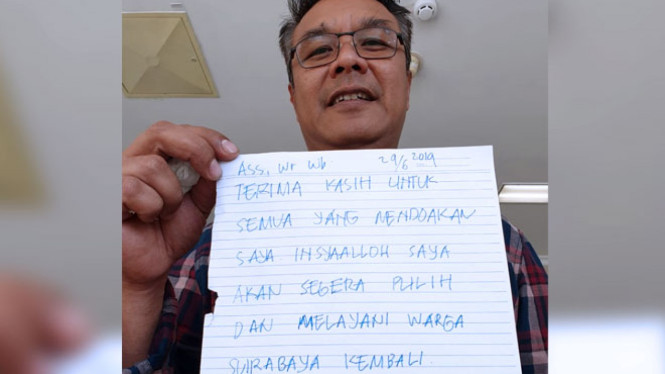 ASS, Wr Wb 29/6 2019
TERIMA KASIH UNTUK
SEMUA YANG MENDOAKAN
SAYA. INSYAALLOH SAYA
AKAN SEGERA PULIH
DAN MELAYANI WARGA
SURABAYA KEMBALI.